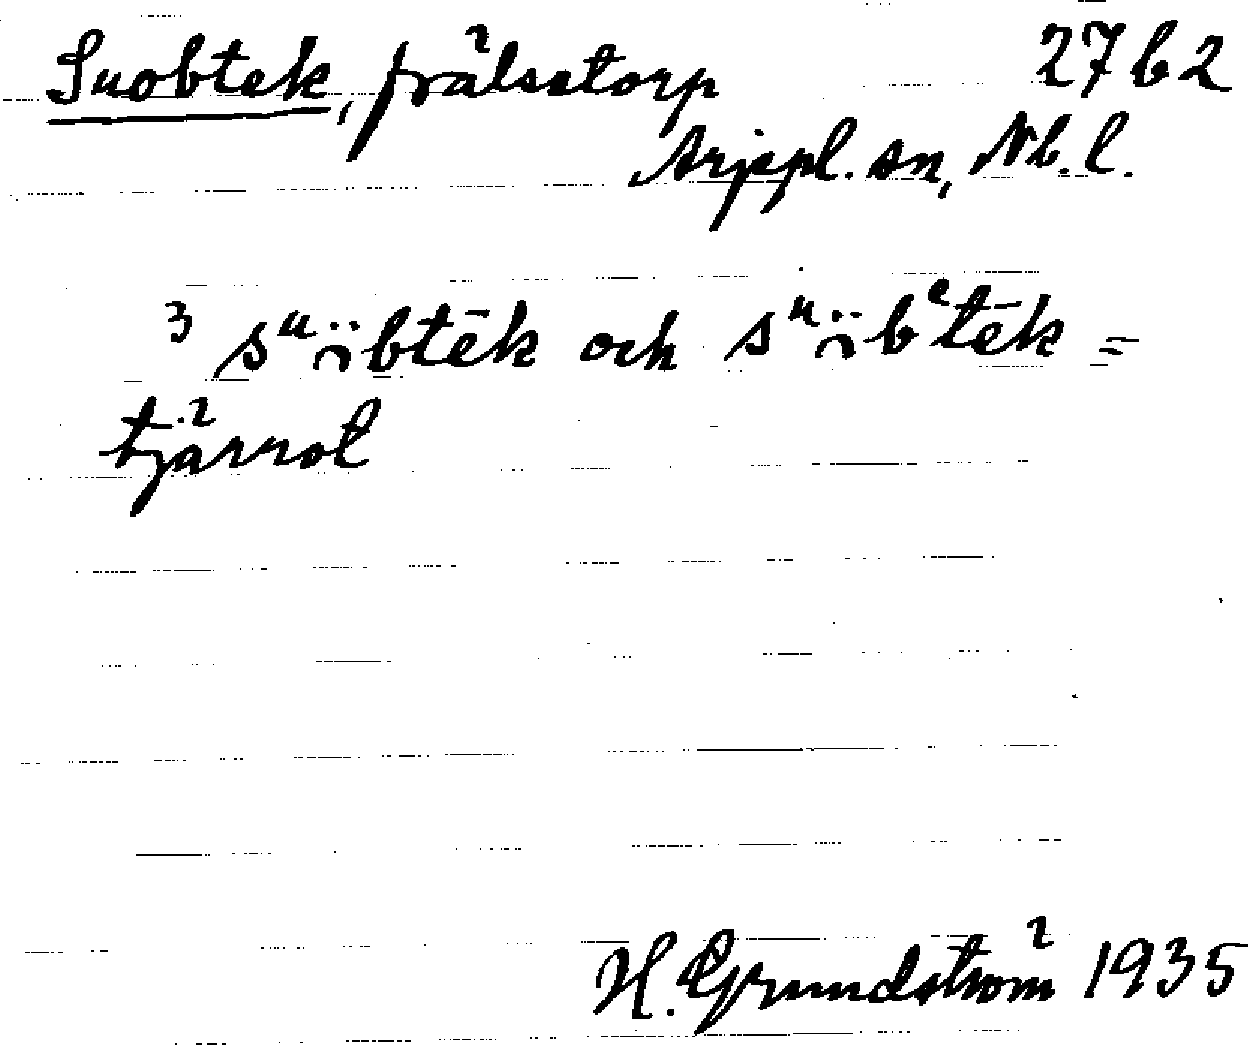 Suobtek, frälsetorp 27 b 2
Arjepl. sn, Nb. l.
3 sᵘöbtēk och sᵘöbᵉtēk =
tjärrot
H. Grundström 1935